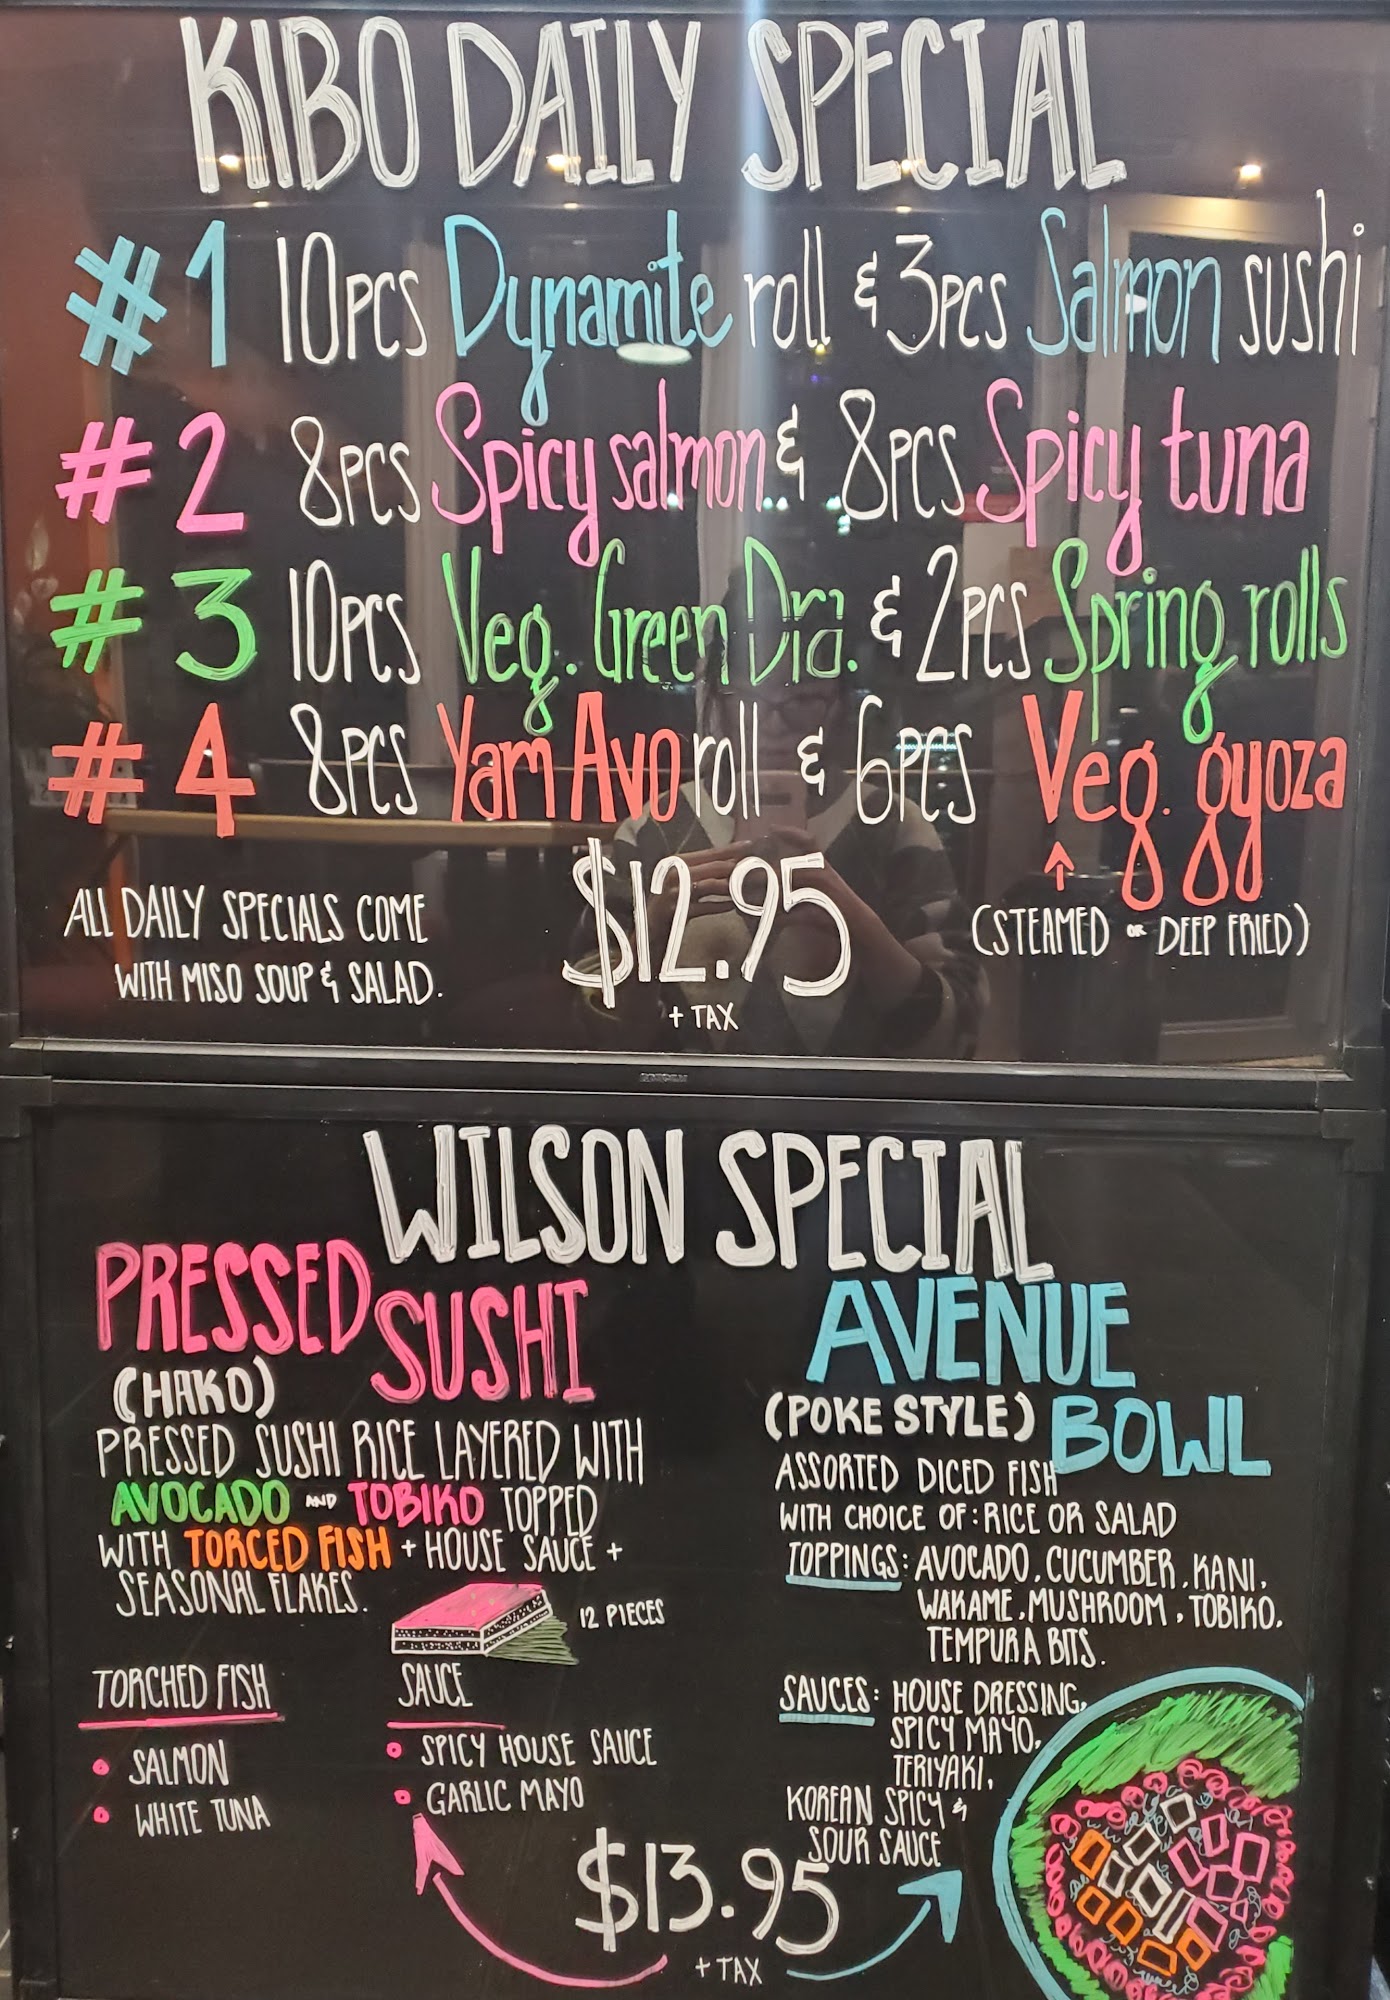 KIBO DAILY SPECIAL
#1 10PCS Dynamite roll & 3PCS Salmon sushi
#2 8PCS Spicy salmon & 8PCS Spicy tuna
#3 10PCS Veg. Green Dra. & 2PCS Spring rolls
#4 8PCS Yam Avo roll & 6PCS Veg. gyoza
(STEAMED OR DEEP FRIED)
ALL DAILY SPECIALS COME
WITH MISO SOUP & SALAD.
$12.95
+ TAX
WILSON SPECIAL
PRESSED SUSHI
(HAKO)
PRESSED SUSHI RICE LAYERED WITH
AVOCADO AND TOBIKO TOPPED
WITH TORCED FISH + HOUSE SAUCE +
SEASONAL FLAKES.
12 PIECES
TORCHED FISH
SALMON
WHITE TUNA
SAUCE
SPICY HOUSE SAUCE
GARLIC MAYO
AVENUE
(POKE STYLE) BOWL
ASSORTED DICED FISH
WITH CHOICE OF: RICE OR SALAD
TOPPINGS: AVOCADO, CUCUMBER, KANI,
WAKAME, MUSHROOM, TOBIKO,
TEMPURA BITS.
SAUCES: HOUSE DRESSING,
SPICY MAYO,
TERIYAKI,
KOREAN SPICY &
SOUR SAUCE
$13.95
+ TAX